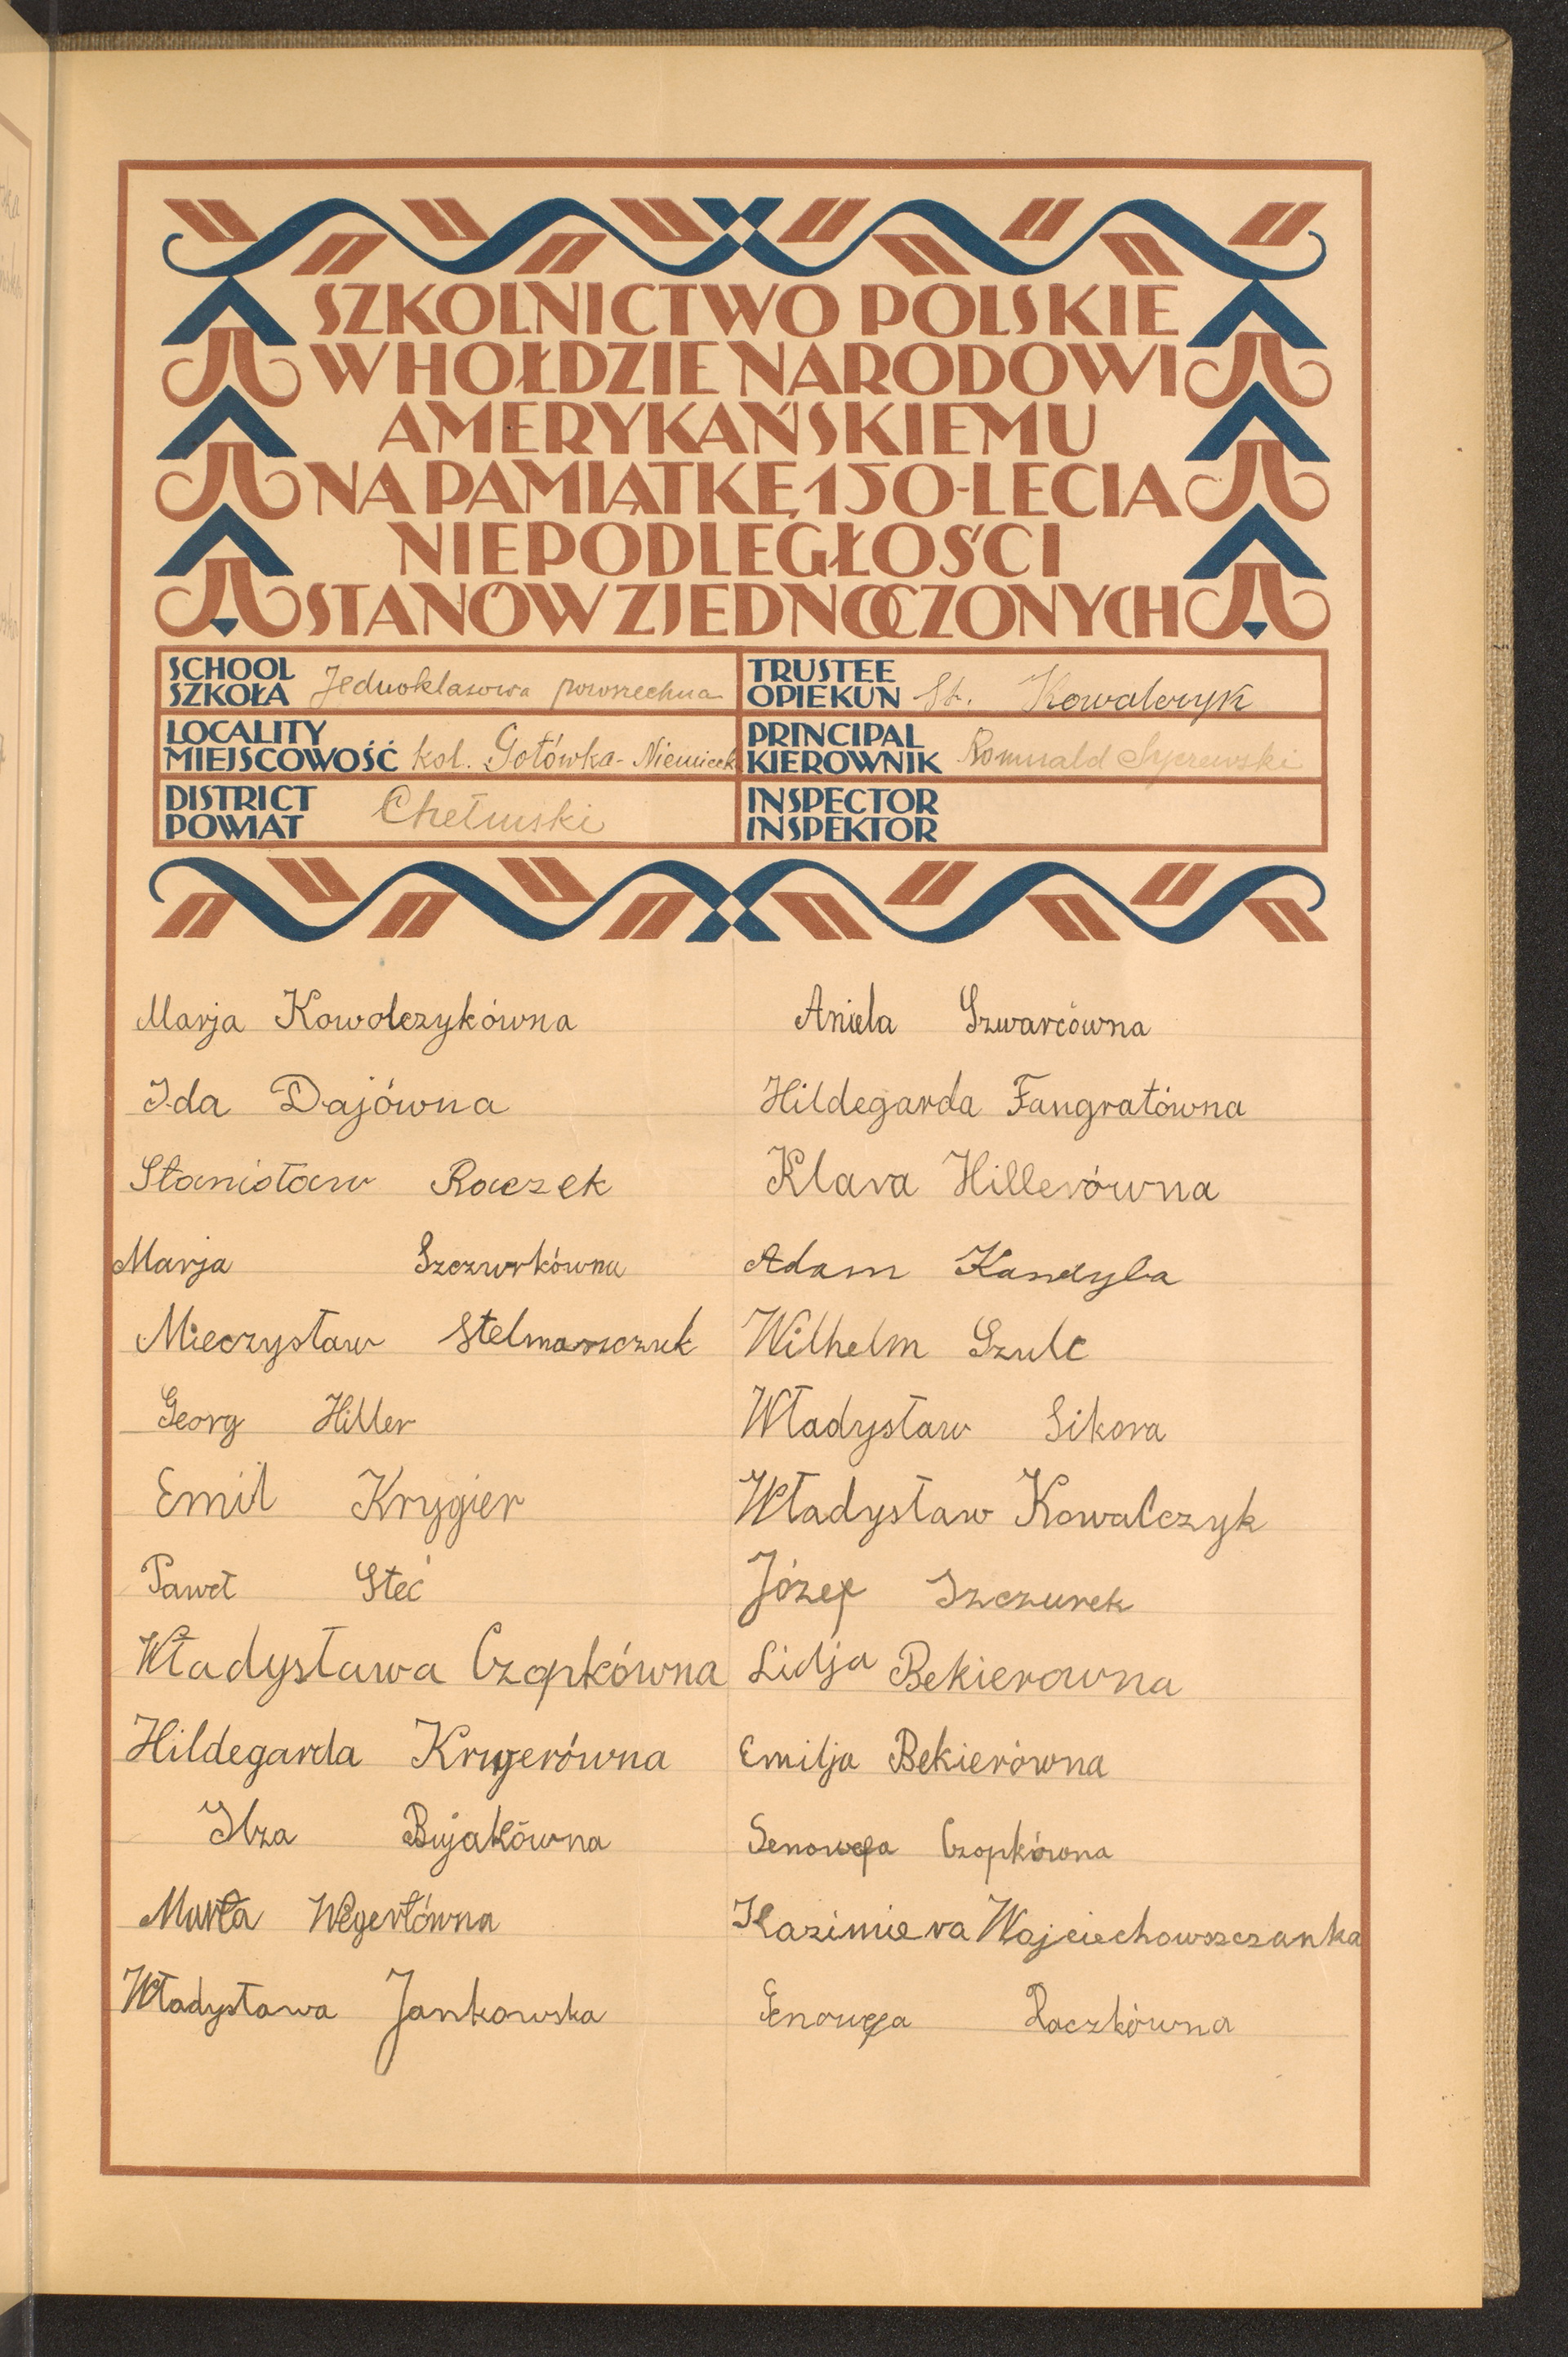 SZKOLNICTWO POLSKIE
W HOŁDZIE NARODOWI
AMERYKAŃSKIEMU
NA PAMIĄTKĘ 150-LECIA
NIEPODLEGŁOŚCI
STANÓW ZJEDNOCZONYCH
SCHOOL
SZKOŁA Jednoklasowa powszechna
TRUSTEE
OPIEKUN St. Kowalczyk
LOCALITY
MIEJSCOWOŚĆ kol. Gotówka-Niemieck
PRINCIPAL
KIEROWNIK Romuald
DISTRICT
POWIAT Chełmski
INSPECTOR
INSPEKTOR
Marja Kowolczykówna
Ida Dajówna
Stanisław Raczek
Marja Szczurkówna
Mieczysław Stelmaszczuk
Georg Hiller
Emil Krygier
Paweł Steć
Władysława Czopkówna
Hildegarda Krygerówna
Ilza Bujakówna
Marta Wegertówna
Władysława Jankowska
Aniela Szwarcówna
Hildegarda Fangratówna
Klara Hillerówna
Adam Kandyba
Wilhelm Szulc
Władysław Sikora
Władysław Kowalczyk
Józef Szczurek
Lidja Bekierowna
Emilja Bekierówna
Genowefa Czopkówna
Kazimiera Wojciechowszczanka
Genowefa Raczkówna